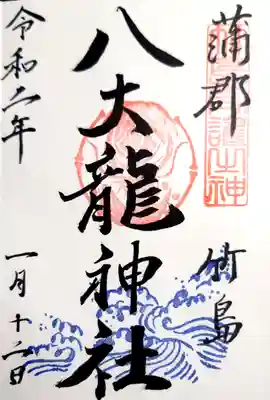 蒲郡 竹島
八大龍神社
令和二年 一月十二日